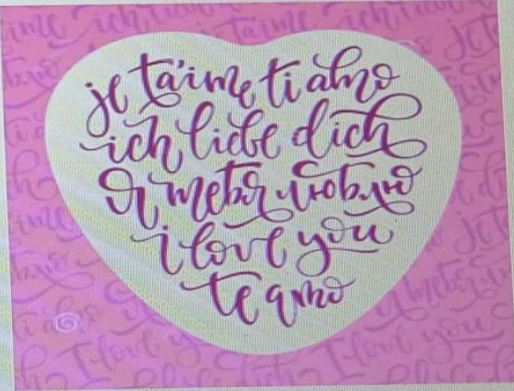 je ta'ime ti amo
ich liebe dich
Я тебя люблю
i love you
te amo